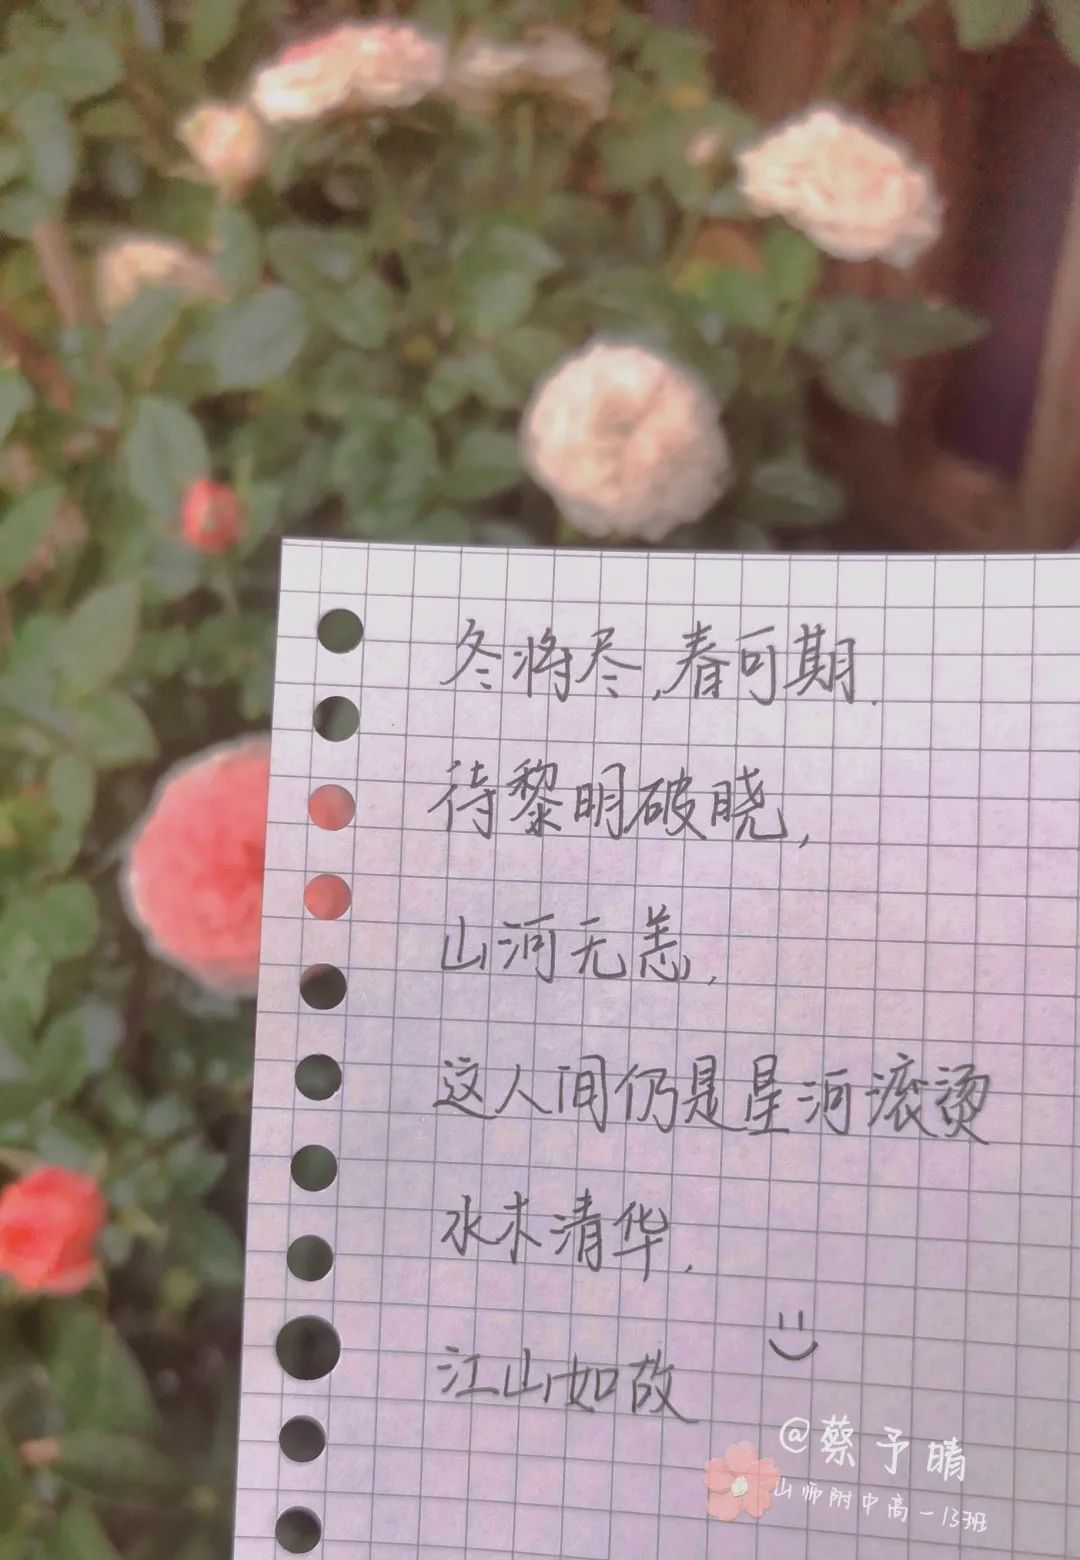 冬将尽,春可期.
待黎明破晓,
山河无恙,
这人间仍是星河滚烫
水木清华,
江山如故
@蔡予晴
山师附中高一13班